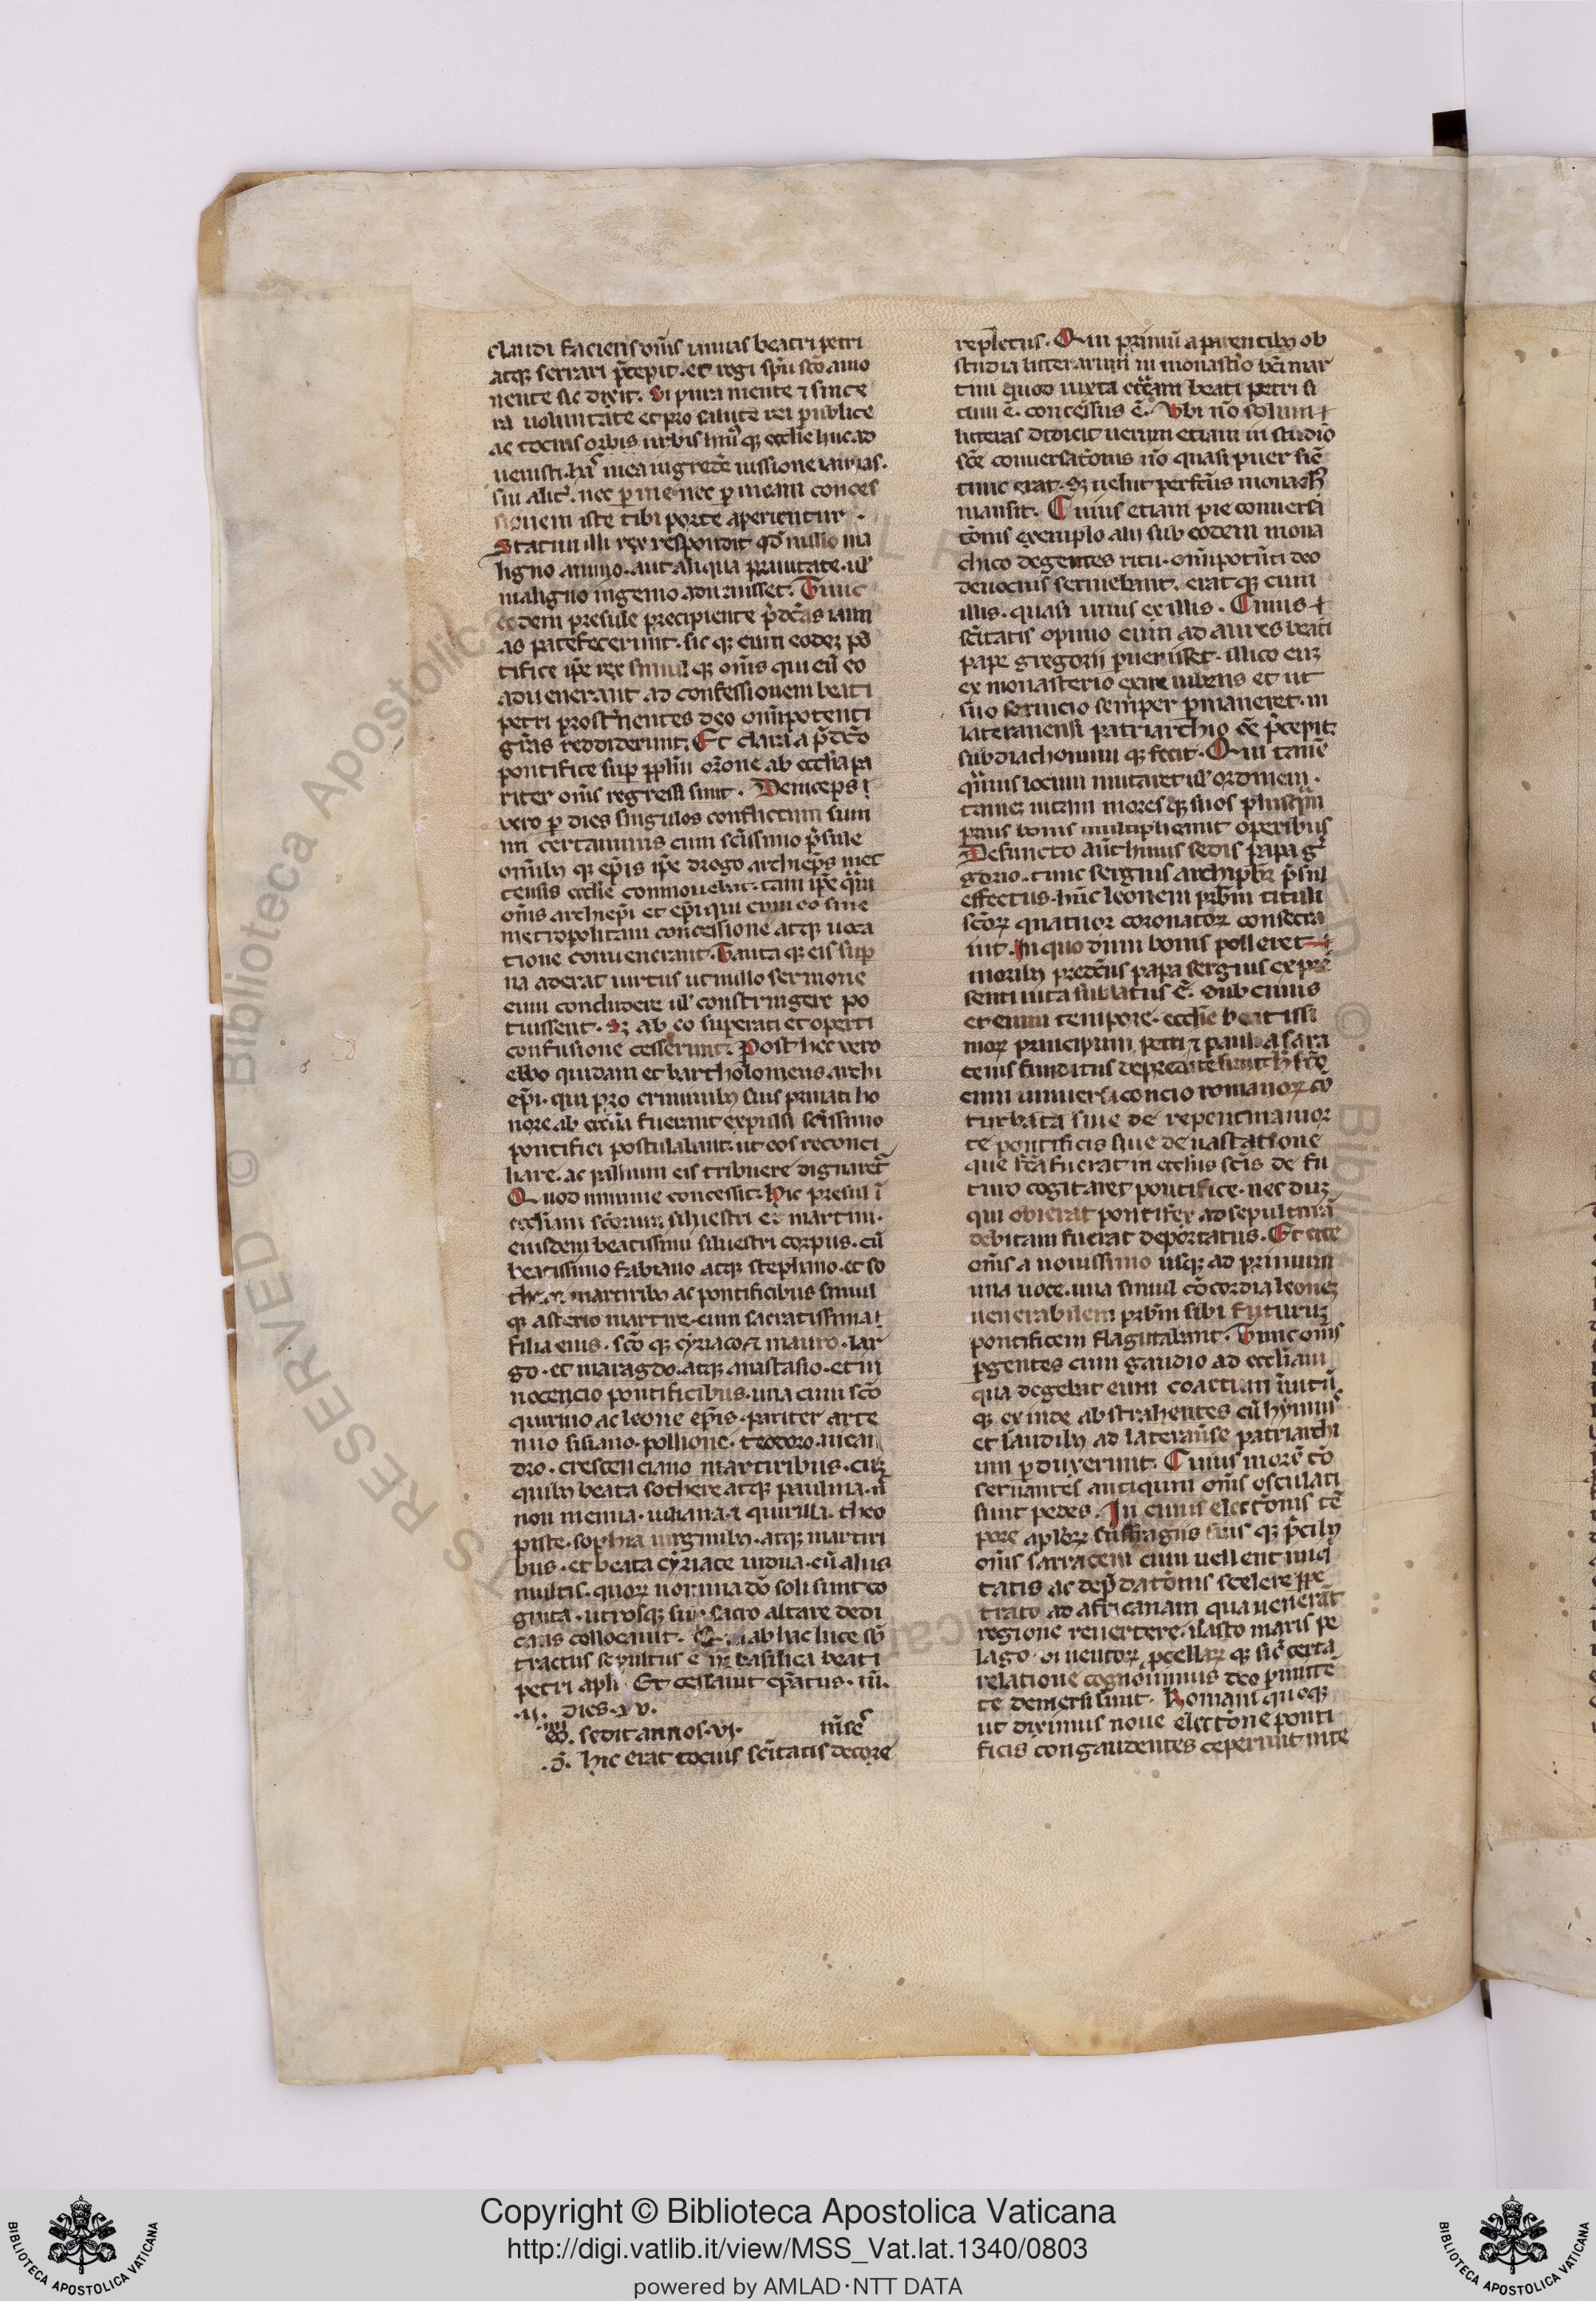 claudi faciens om̄s ianuas beati petri
atq; serrari p̄cepit. et regi sp̄u sc̄o amo
nente sic dixit. Si pura mente ⁊ since
ra uoluntate et pro salute rei publice
ac tocius orbis urbis ecclie huc ad
uenisti. mea ingredē iussione ianuas.
sin alit̄. nec p̱ me nec p̱ meam conces
sionem iste tibi porte aperientur.
Statim illi rex respondit qd̄ nullo ma
ligno animo. aut aliqua prauitate. ul̄
maligno ingenio aduenisset. Tunc
eodem presule precipiente p̄dc̄as ianu
as patefecerunt. sic q; cum eodez pō
tifice ip̄e rex simul q; om̄s qui cū eo
aduenerant ad confessionem beati
petri prosternentes deo om̄ipotenti
gr̄as reddiderunt. Et clara a p̄dc̄o
pontifice sup̱ pp̄lm̄ or̄one ab ecclia pa
riter om̄s regressi sunt. Deinceps
vero p̱ dies singulos conflictum sum
mi certaminis cum sc̄issimo p̄sule
om̄ib; q; ep̄is ip̄e drogo archiep̄s met
tensis ecclie conmouebat. tam ip̄e q̄m
om̄s archiep̄i et ep̄i qui cum eo sine
metropolitani concessione atq; uoca
tione conuenerant. Tanta q; eis sup̱
na aderat uirtus ut nullo sermone
eum concludere ul̄ constringere po
tuissent. Sz ab eo superati et operti
confusione cesserunt. Post hec vero
ebbo quidam et bartholomeus archi
ep̄i. qui pro criminib; suis priuati ho
nore ab ecclia fuerant expulsi sc̄issimo
pontifici postulabant. ut eos reconci
liare. ac pallium eis tribuere dignaret̄
Quod minime concessit. Hic presul ī
eccliam sc̄orum siluestri et martini.
eiusdem beatissimi siluestri corpus. cū
beatissimo fabiano atq; stephano. et so
there martirib; ac pontificibus simul
q; asterio martire. cum sacratissima
filia eius. sc̄o q; cyriaco ⁊ mauro. lar
go. et maragdo. atq; anastasio. et in
nocencio pontificibus. una cum sc̄o
quirino ac leone ep̄is. pariter arte
mio sisiano. pollione. teodoro. nican
dro. crescenciano martiribus. cuz
quib; beata sothere atq; paulina. n̄
non menna. iuliana. ⁊ quirilla. theo
piste. sophia uirginib;. atq; martiri
bus. et beata cyriace uidua. cū aliis
multis. quoꝝ nomina dō soli sunt co
gnita. utrosq; sacro altare dedi
cans collocauit. Qui ab hac luce sb̄
tractus sepultus ē in basilica beati
petri apl̄i. Et cessauit ep̄atus.
dies. xv.
sedit annos. vi.
hic erat tocius sc̄itatis decore
repletus. Qui primū a parentib; ob
studia litterarum in monast̄io bēi mar
tini quod iuxta eccliam beati petri si
tum ē. concessus ē. Vbi nō solum
litteras didicit uerum etiam in studio
sc̄e conuersatōnis nō quasi puer sic̄
tunc erat. sz uelut perfectus monach̄
mansit. Cuius etiam pie conuersa
tōnis exemplo alii sub eodem mona
chico degentes ritu. om̄ipotenti deo
deuocius seruiebant. erat q; cum
illis. quasi unus ex illis. Cuius
sc̄itatis opinio cum ad aures beati
pape gregorii p̱uenisset. illico euz
ex monasterio exire iubens et ut
suo seruicio semper p̱maneret. in
lateranensi patriarchio ēē p̄cepit
subdiachonum q; fecit. Qui tam̄
q̄muis locum mutaret ul̄ ordinem.
tamez uitam mores q; suos plusq̄m
prius bonis multiplicauit operibus
Defuncto antimius sedis papa g̅
gorio. tunc sergius archip̄br̄ p̄sul
effectus. hūc leonem p̄br̄m tituli
sc̄oꝝ quatuor coronatoꝝ consecra
uit. In quo dum bonis polleret
morib; predc̄us papa sergius ex pre
senti uita sublatus ē. Sub cuius
etenim tempore. ecclie beatissi
moꝝ principum petri ⁊ pauli a sara
cenis funditus depredate sunt.
cum uniuersa concio romanoꝝ cō
turbata siue de repentina mor
te pontificis siue deuastatione
que fc̄a fuerat in ecclis sc̄is de fu
turo cogitaret pontifice. nec duz
qui obierat pontifex ad sepulturā
debitam fuerat deportatus. Et ecce
om̄s a nouissimo usq; ad primum
una uoce. una simul cōcordia leonez
uenerabilem p̄br̄m sibi futuruz
pontificem flagitabant. Tunc om̄s
p̱gentes cum gaudio ad eccliam
qua degebat eum coactum inuitū
q; exinde abstrahentes cū hymnis
et laudib; ad lateran̄se patriarchi
um p̱duxerunt. Cuius morē cō
seruantes antiqum om̄s osculati
sunt pedes. In cuius electōnis tē
pore apl̄oꝝ suffragiis suis q; p̄cib;
om̄s sarraceni cum uellent iniq
tatis ac dep̄datōnis scelere ppe
trato ad africanam qua uenerāt
regione reuertere. uasto maris pe
lago ui uentoꝝ p̱cellaꝝ q; sic̄ certa
relatione cognouimus deo p̱mitte
te demersi sunt. Romani quoq;
ut diximus noue electōne ponti
ficis congaudentes ceperunt inte
Copyright © Biblioteca Apostolica Vaticana
http://digi.vatlib.it/view/MSS_Vat.lat.1340/0803
powered by AMLAD·NTT DATA
BIBLIOTECA APOSTOLICA VATICANA
BIBLIOTECA APOSTOLICA VATICANA